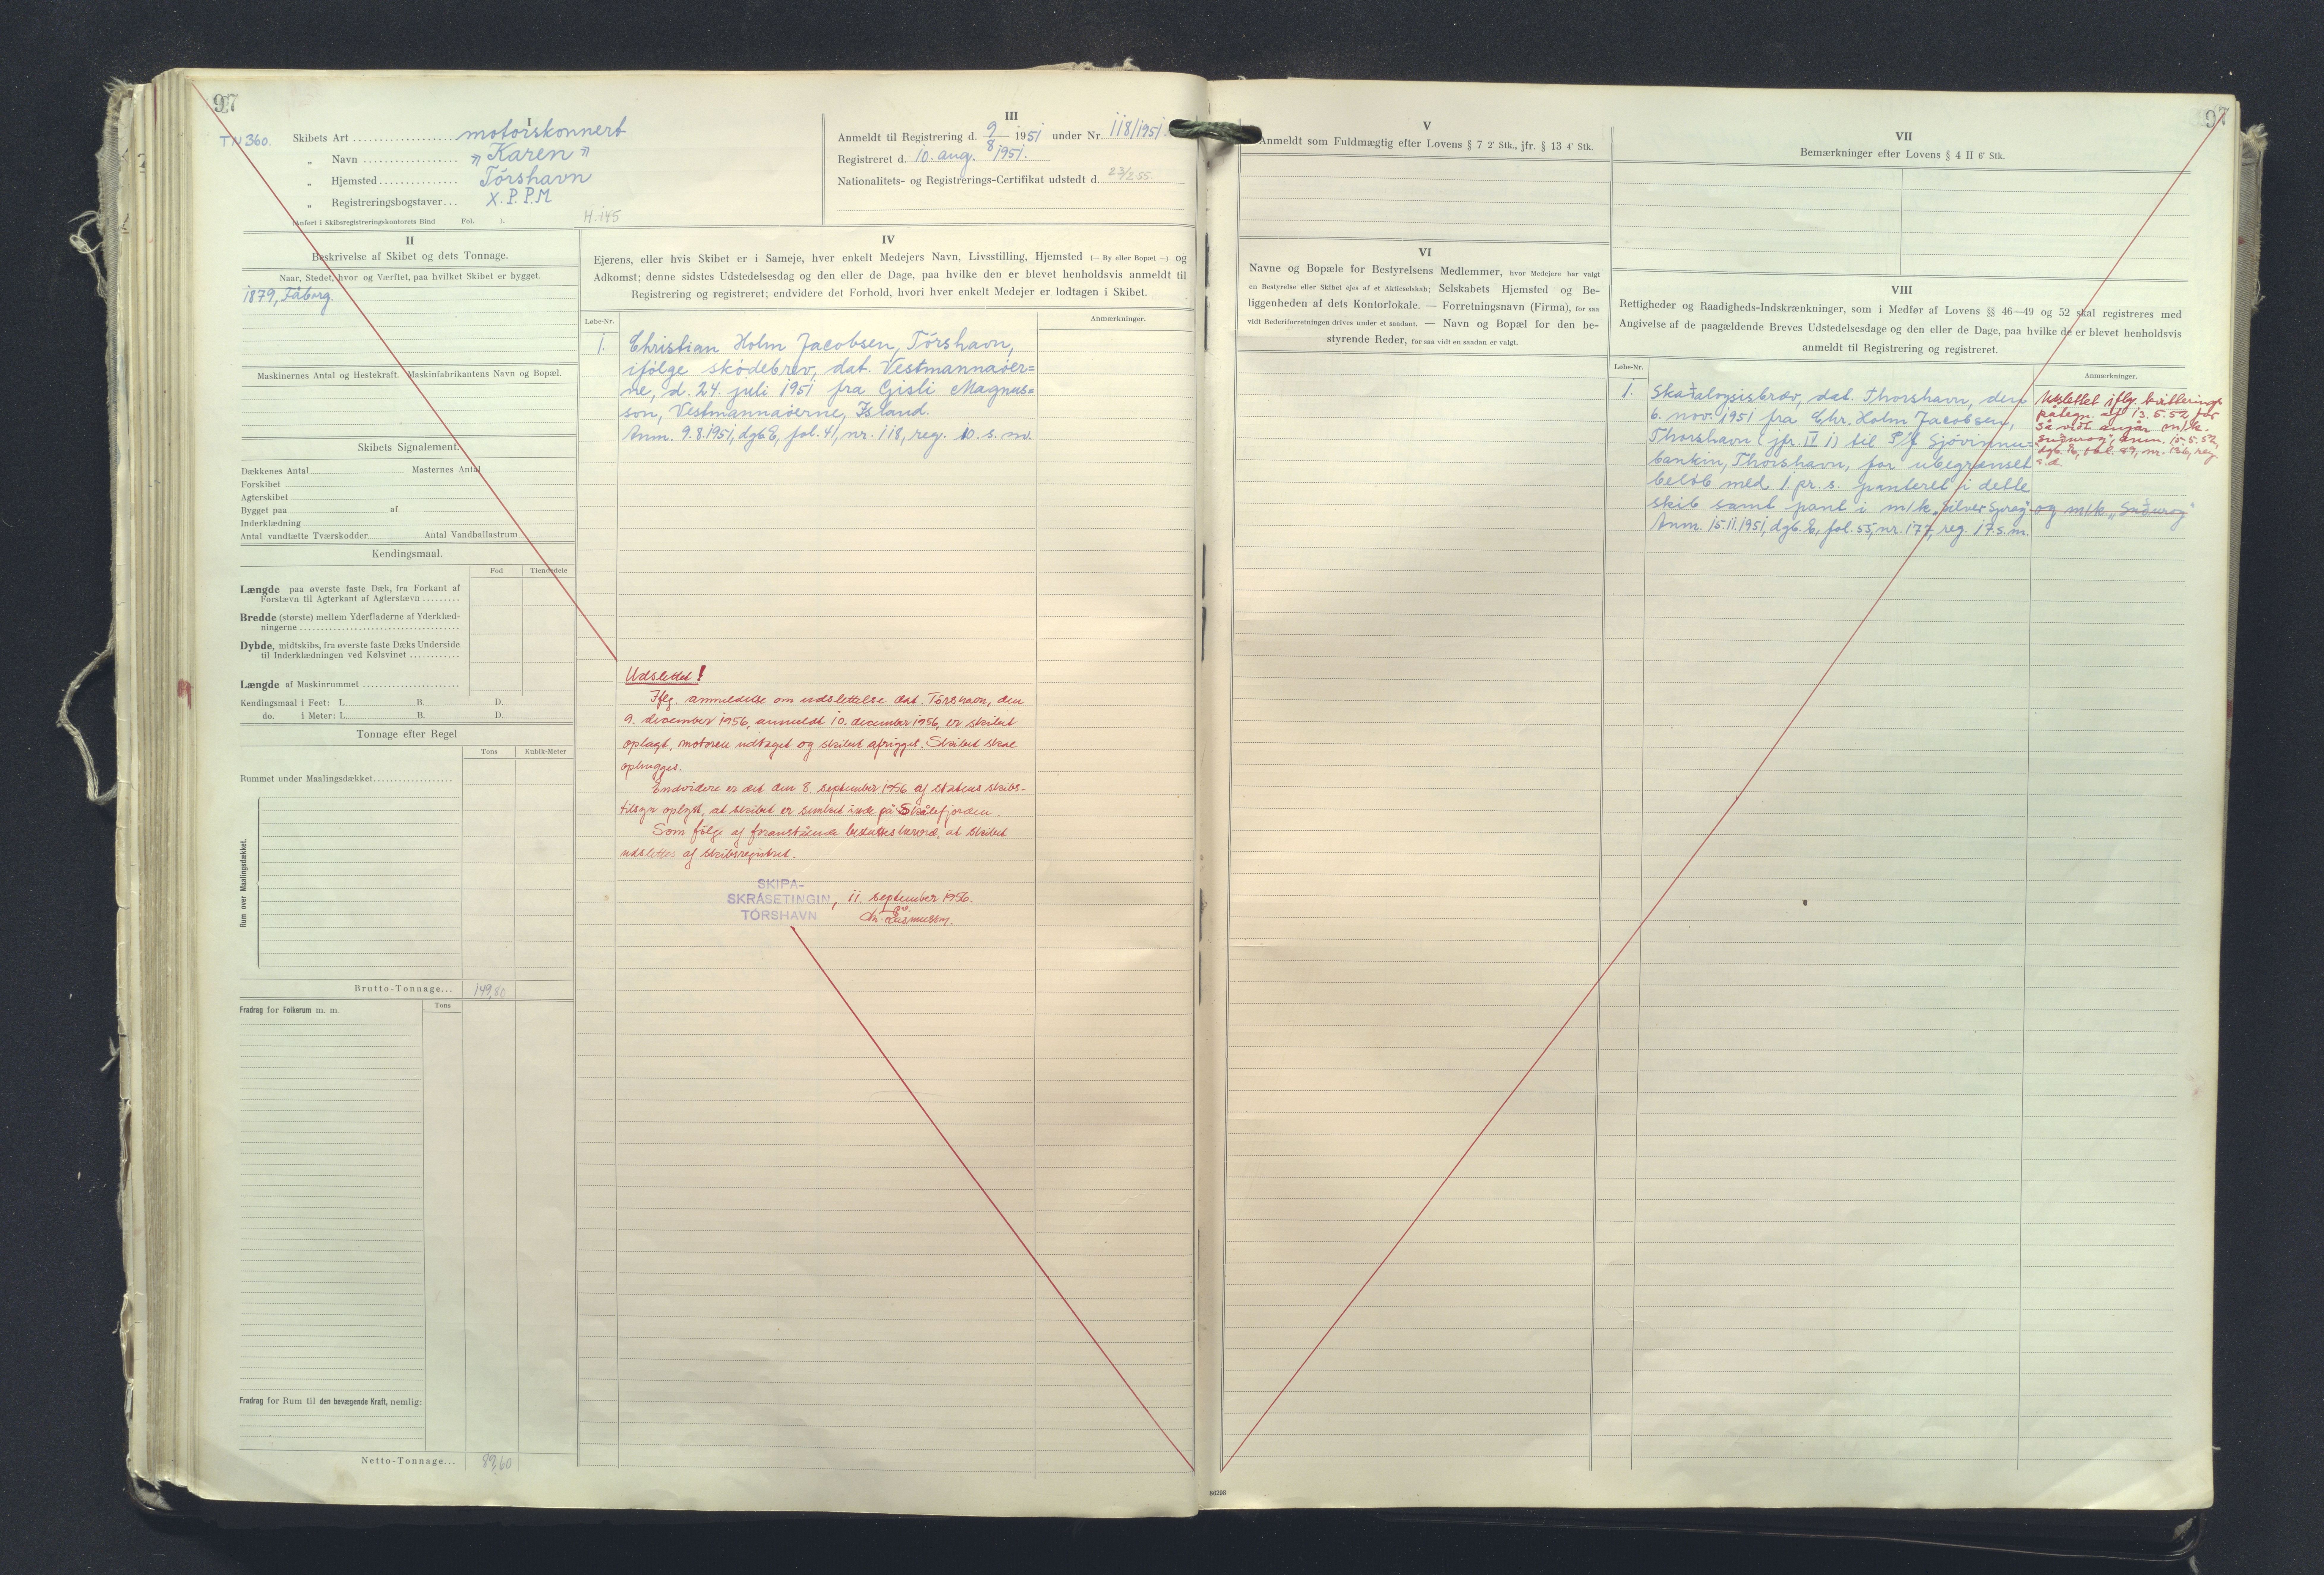 97
TN 360.
I
Skibets Art motorskonnert
„ Navn "Karen"
„ Hjemsted Tórshavn
„ Registreringsbogstaver X.P.P.M
(Anført i Skibsregistreringskontorets Bind Fol. ).
H. 145
III
Anmeldt til Registrering d. 9/8 1951 under Nr. 118/1951.
Registreret d. 10. aug. 1951.
Nationalitets- og Registrerings-Certifikat udstedt d. 23/2 55.
II
Beskrivelse af Skibet og dets Tonnage.
Naar, Stedet, hvor og Værftet, paa hvilket Skibet er bygget.
1879, Fåborg.
Maskinernes Antal og Hestekraft. Maskinfabrikantens Navn og Bopæl.
Skibets Signalement.
Dækkenes Antal Masternes Antal
Forskibet
Agterskibet
Bygget paa af
Inderklædning
Antal vandtætte Tværskodder Antal Vandballastrum
Kendingsmaal.
Fod Tiendedele
Længde paa øverste faste Dæk, fra Forkant af
Forstævn til Agterkant af Agterstævn
Bredde (største) mellem Yderfladerne af Yderklæd-
ningerne
Dybde, midtskibs, fra øverste faste Dæks Underside
til Inderklædningen ved Kølsvinet
Længde af Maskinrummet
Kendingsmaal i Feet: L. B. D.
do. i Meter: L. B. D.
Tonnage efter Regel
Tons Kubik-Meter
Rummet under Maalingsdækket
Rum over Maalingsdækket.
Brutto-Tonnage... 149,80
Tons
Fradrag for Folkerum m. m.
Fradrag for Rum til den bevægende Kraft, nemlig:
Netto-Tonnage... 89,60
IV
Ejerens, eller hvis Skibet er i Sameje, hver enkelt Medejers Navn, Livsstilling, Hjemsted (— By eller Bopæl —) og
Adkomst; denne sidstes Udstedelsesdag og den eller de Dage, paa hvilke den er blevet henholdsvis anmeldt til
Registrering og registreret; endvidere det Forhold, hvori hver enkelt Medejer er lodtagen i Skibet.
Løbe-Nr. Anmærkninger.
1. Christian Holm Jacobsen, Tórshavn,
ifølge skødebrev, dat. Vestmannaøer=
ne, d. 24. juli 1951 fra Gisli Magnus=
son, Vestmannaøerne, Island.
Anm. 9.8.1951, dgb. E, fol. 41, nr. 118, reg. 10. s. m.
Udslettet!
Iflg. anmeldelse om udslettelse dat. Tórshavn, den
9. december 1956, anmeldt 10. december 1956, er skibet
oplagt, motoren udtaget og skibet afrigget. Skibet skal
ophugges.
Endvidere er det den 8. september 1956 af statens skibs-
tilsyn oplyst, at skibet er sunket inde på Skálefjorden.
Som følge af foranstående besluttes herved, at skibet
udslettes af skibsregistret.
SKIPA-
SKRÁSETINGIN, 11. september 1956.
TÓRSHAVN Rasmussen.
97
V
Anmeldt som Fuldmægtig efter Lovens § 7 2' Stk., jfr. § 13 4' Stk.
VI
Navne og Bopæle for Bestyrelsens Medlemmer, hvor Medejere har valgt
en Bestyrelse eller Skibet ejes af et Aktieselskab; Selskabets Hjemsted og Be-
liggenheden af dets Kontorlokale. — Forretningsnavn (Firma), for saa
vidt Rederiforretningen drives under et saadant. — Navn og Bopæl for den be-
styrende Reder, for saa vidt en saadan er valgt.
VII
Bemærkninger efter Lovens § 4 II 6' Stk.
VIII
Rettigheder og Raadigheds-Indskrænkninger, som i Medfør af Lovens §§ 46—49 og 52 skal registreres med
Angivelse af de paagældende Breves Udstedelsesdage og den eller de Dage, paa hvilke de er blevet henholdsvis
anmeldt til Registrering og registreret.
Løbe-Nr. Anmærkninger.
1. Skaðaloysisbrøv, dat. Thorshavn, den
6. nov. 1951 fra Chr. Holm Jacobsen,
Thorshavn (jfr. IV 1) til P/f Sjóvinnu=
bankin, Thorshavn, for ubegrænset
beløb med 1. pr. s. panteret i dette
skib samt pant i m/k "Silver Spray" og m/k. "Suðuroy"
Anm. 15.11.1951, dgb. E, fol. 55, nr. 177, reg. 17. s. m.
Udslettet iflg. kvitterings-
påtegn. af 13.5.52 for
så vidt angår m/k.
"Suðuroy", anm. 15.5.52,
dgb. E, fol. 89, nr. 126, reg.
s. d.
86298